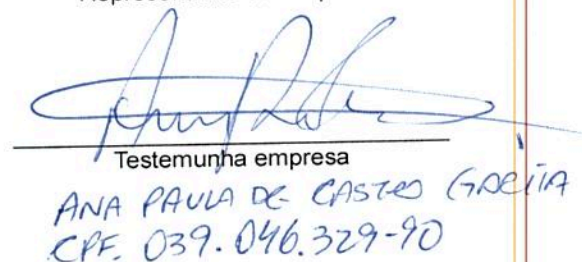 Testemunha empresa
ANA PAULA DE CASTRO
CPF. 039.046.329-90